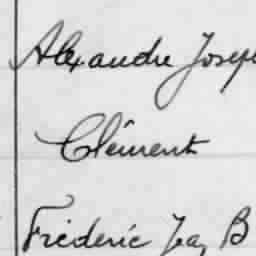 Alexandre Joseph
Clément
Frédéric Jea, B